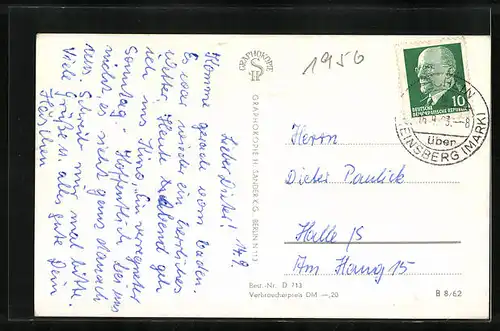 Lieber Dieter! 14.9.
Komme gerade vom Baden.
Es war wieder ein herrliches
Wetter. Heute Abend geh
ich ins Kino, "Ein verregneter
Sonntag". Hoffentlich bei uns
nicht es nicht ganz danach
aus. Schreib mir mal bitte.
Viele Grüße u. alles gute Dein
GRAPHOKOPIE
GRAPHOKOPIE H. SANDER K.G. BERLIN N 113
1956
DEUTSCHE
DEMOKRATISCHE REPUBLIK
10
über
(MARK)
Herrn
Dieter Paulick
Halle/S
Am Hang 15
Best.-Nr. D 713
Verbraucherpreis DM —,20
B 8/62